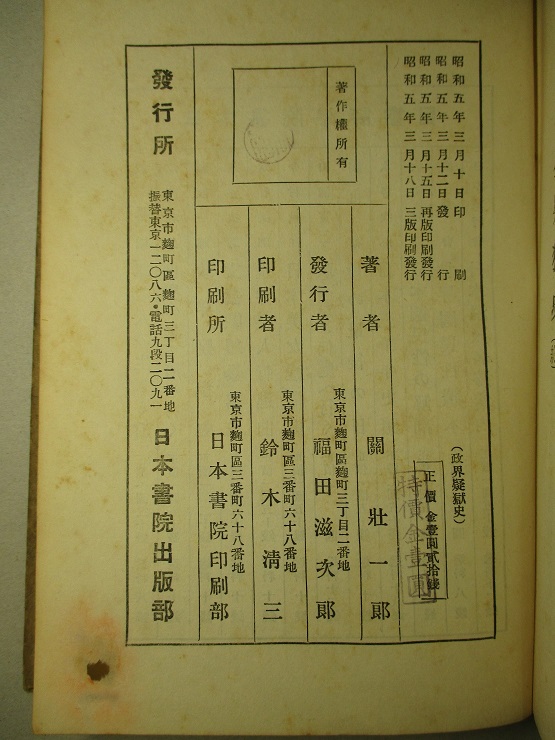 昭和五年三月十日印刷
昭和五年三月十二日發行
昭和五年三月十五日再版印刷發行
昭和五年三月十八日三版印刷發行
(政界疑獄史)
正價金壹圓貳拾錢
特價金壹圓
著作權所有
著者 關壯一郞
東京市麴町區麴町三丁目二番地
發行者 福田滋次郞
東京市麴町區三番町六十八番地
印刷者 鈴木淸三
東京市麴町區三番町六十八番地
印刷所 日本書院印刷部
發行所
東京市麴町區麴町三丁目二番地
振替東京一二〇八六・電話九段二〇九一
日本書院出版部